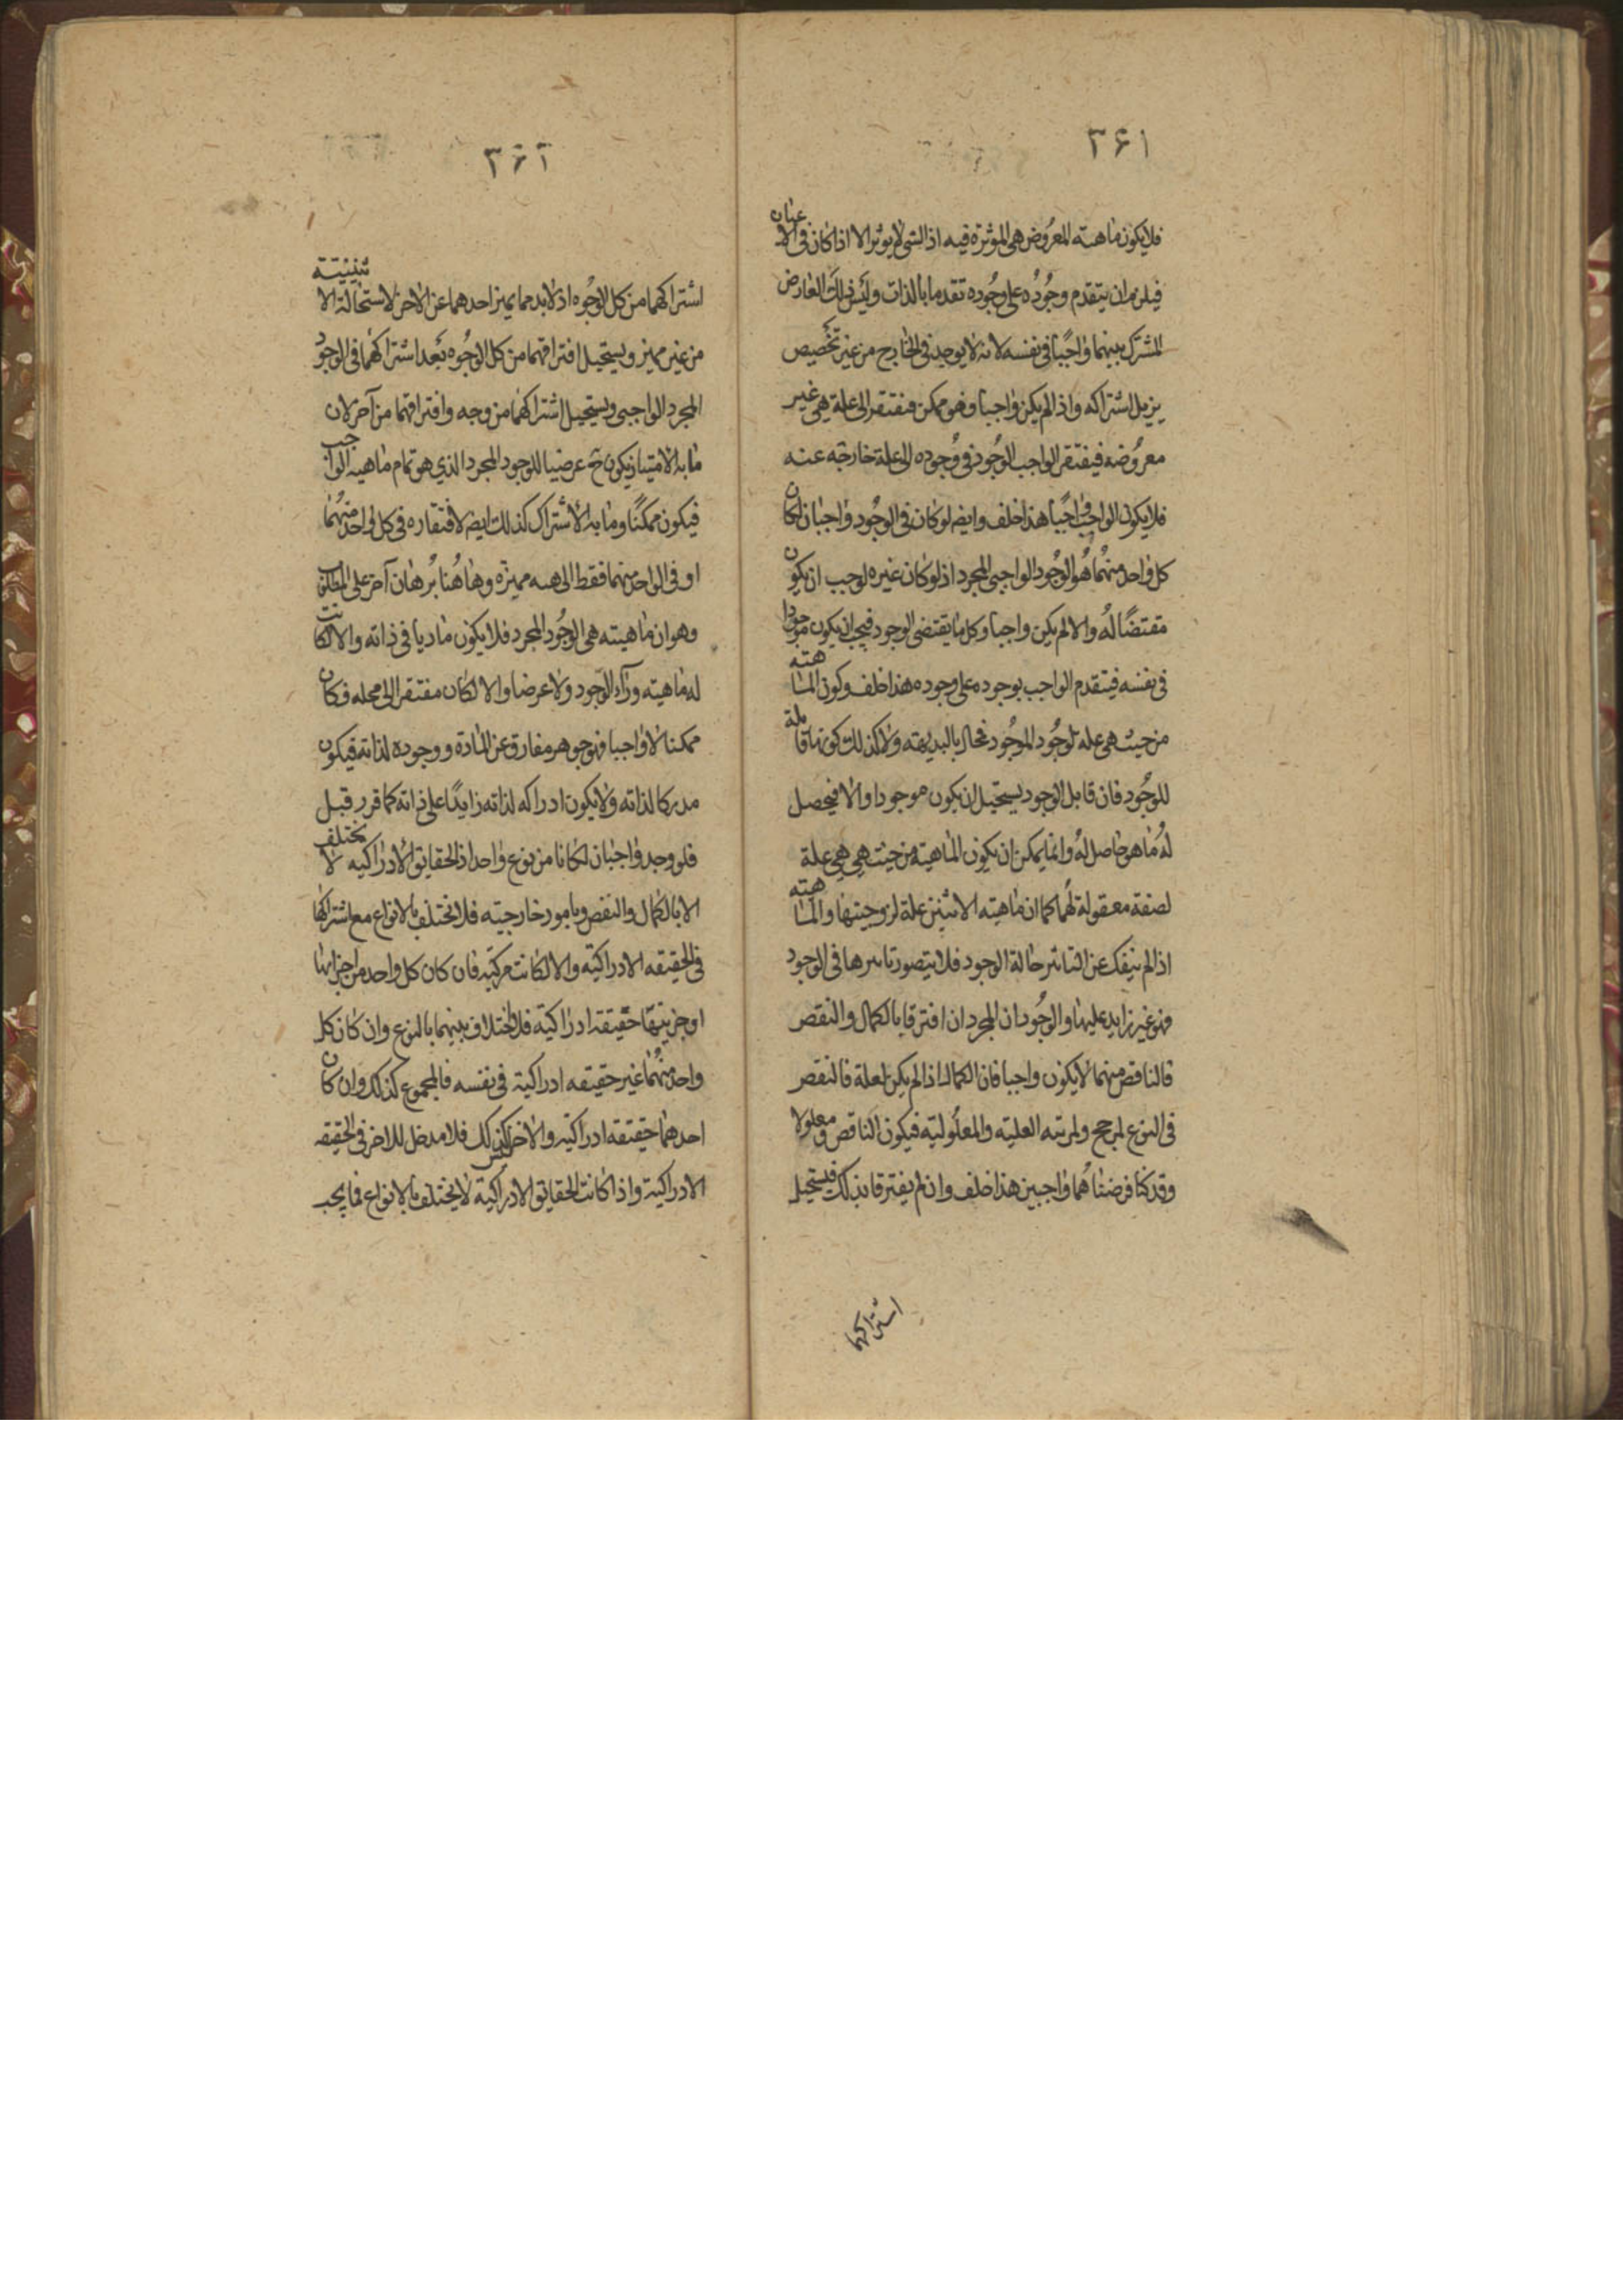 ۳۶۱
فلا يكون ماهيته المعروض هى المؤثرة فيه اذ الشى لا يؤثر الا اذا كان فى الاعيان
فيلزم ان يتقدم وجوده على وجوده تقدما بالذات وليس ذلك العارض
المشترك بينهما واجبًا فى نفسه لانه لا يوجد فى الخارج من غير تخصيص
يزيل اشتراكه واذا لم يكن واجبا وهو ممكن فيفتقر الى علة هى غير
معروضه فيفتقر الواجب الوجود فى وجوده الى علة خارجه عنه
فلا يكون الواجب واجبًا هذا خلف وايضا لو كان فى الوجود واجبان لكان
كل واحد منهما هو الوجود الواجبى المجرد اذ لو كان غيره لوجب ان يكون
مقتضًا له والا لم يكن واجبا وكل ما يقتضى الوجود فيجب ان يكون موجودا
فى نفسه فيتقدم الواجب بوجوده على وجوده هذا خلف وكون الماهيته
من حيث هى علة لوجود الموجود فمحال بالبديهته ولا كذلك كونها قابلة
للوجود فان قابل الوجود يستحيل ان يكون موجودا والا فيحصل
له ما هو حاصل له وانما يمكن ان يكون الماهيته من حيث هى هى علة
لصفة معقولة لها كما ان ماهيته الاثنين علة لزوجيتها والماهيته
اذا لم ينفك عن التاثير حالة الوجود فلا يتصور تاثيرها فى الوجود
فهو غير زايد عليها والوجودان المجردان افترقا بالكمال والنقص
فالناقص منهما لا يكون واجبا فان الكمال اذا لم يكن لعلة فالنقص
فى النوع لمرجح ولمرتبه العليته والمعلوليته فيكون الناقص معلولا
وقد كنا فرضناهما واجبين هذا خلف وان لم يفترقا بذلك فيستحيل
اشتراكهما
۳۶۲
اشتراكهما من كل الوجوه اذ لا بد مما يميز احدهما عن الاخر لاستحالة الاثنينيته
من غير مميز ويستحيل افتراقهما من كل الوجوه بعد اشتراكهما فى الوجود
المجرد الواجبى ويستحيل اشتراكهما من وجه وافتراقهما من آخر لان
ما به الامتياز يكون ح عرضيا للوجود المجرد الذي هو تمام ماهيه الواجب
فيكون ممكنًا وما به الاشتراك كذلك ايضا لافتقاره فى كل واحد منهما
او فى الواحد منهما فقط الى هيه مميزه وهاهنا برهان آخر على المطلوب
وهو ان ماهيته هى الوجود المجرد فلا يكون ماديا فى ذاته والا لكانت
له ماهيته وراء الوجود ولا عرضا والا لكان مفتقر الى محله فكان
ممكنا لا واجبا فهو جوهر مفارق عن المادة ووجوده لذاته فيكون
مدركا لذاته ولا يكون ادراكه لذاته زايدًا على ذاته كما قرر قبل
فلو وجد واجبان لكانا من نوع واحد اذ الحقايق الادراكيه لا يختلف
الا بالكمال والنقص وبامور خارجيته فلا تختلف بالانواع مع اشتراكها
فى الحقيقه الادراكيته والا لكانت مركبته فان كان كل واحد من اجزايها
او جزئيها حقيقة ادراكيته فلا اختلاف بينهما بالنوع وان كان كل
واحد منهما غير حقيقه ادراكية فى نفسه فالمجموع كذلك وان كان
احدهما حقيقته ادراكيته والاخر ليس كذلك فلا مدخل للاخر فى الحقيقه
الادراكية واذا كانت الحقايق الادراكية لا يختلف بالانواع فما يجب